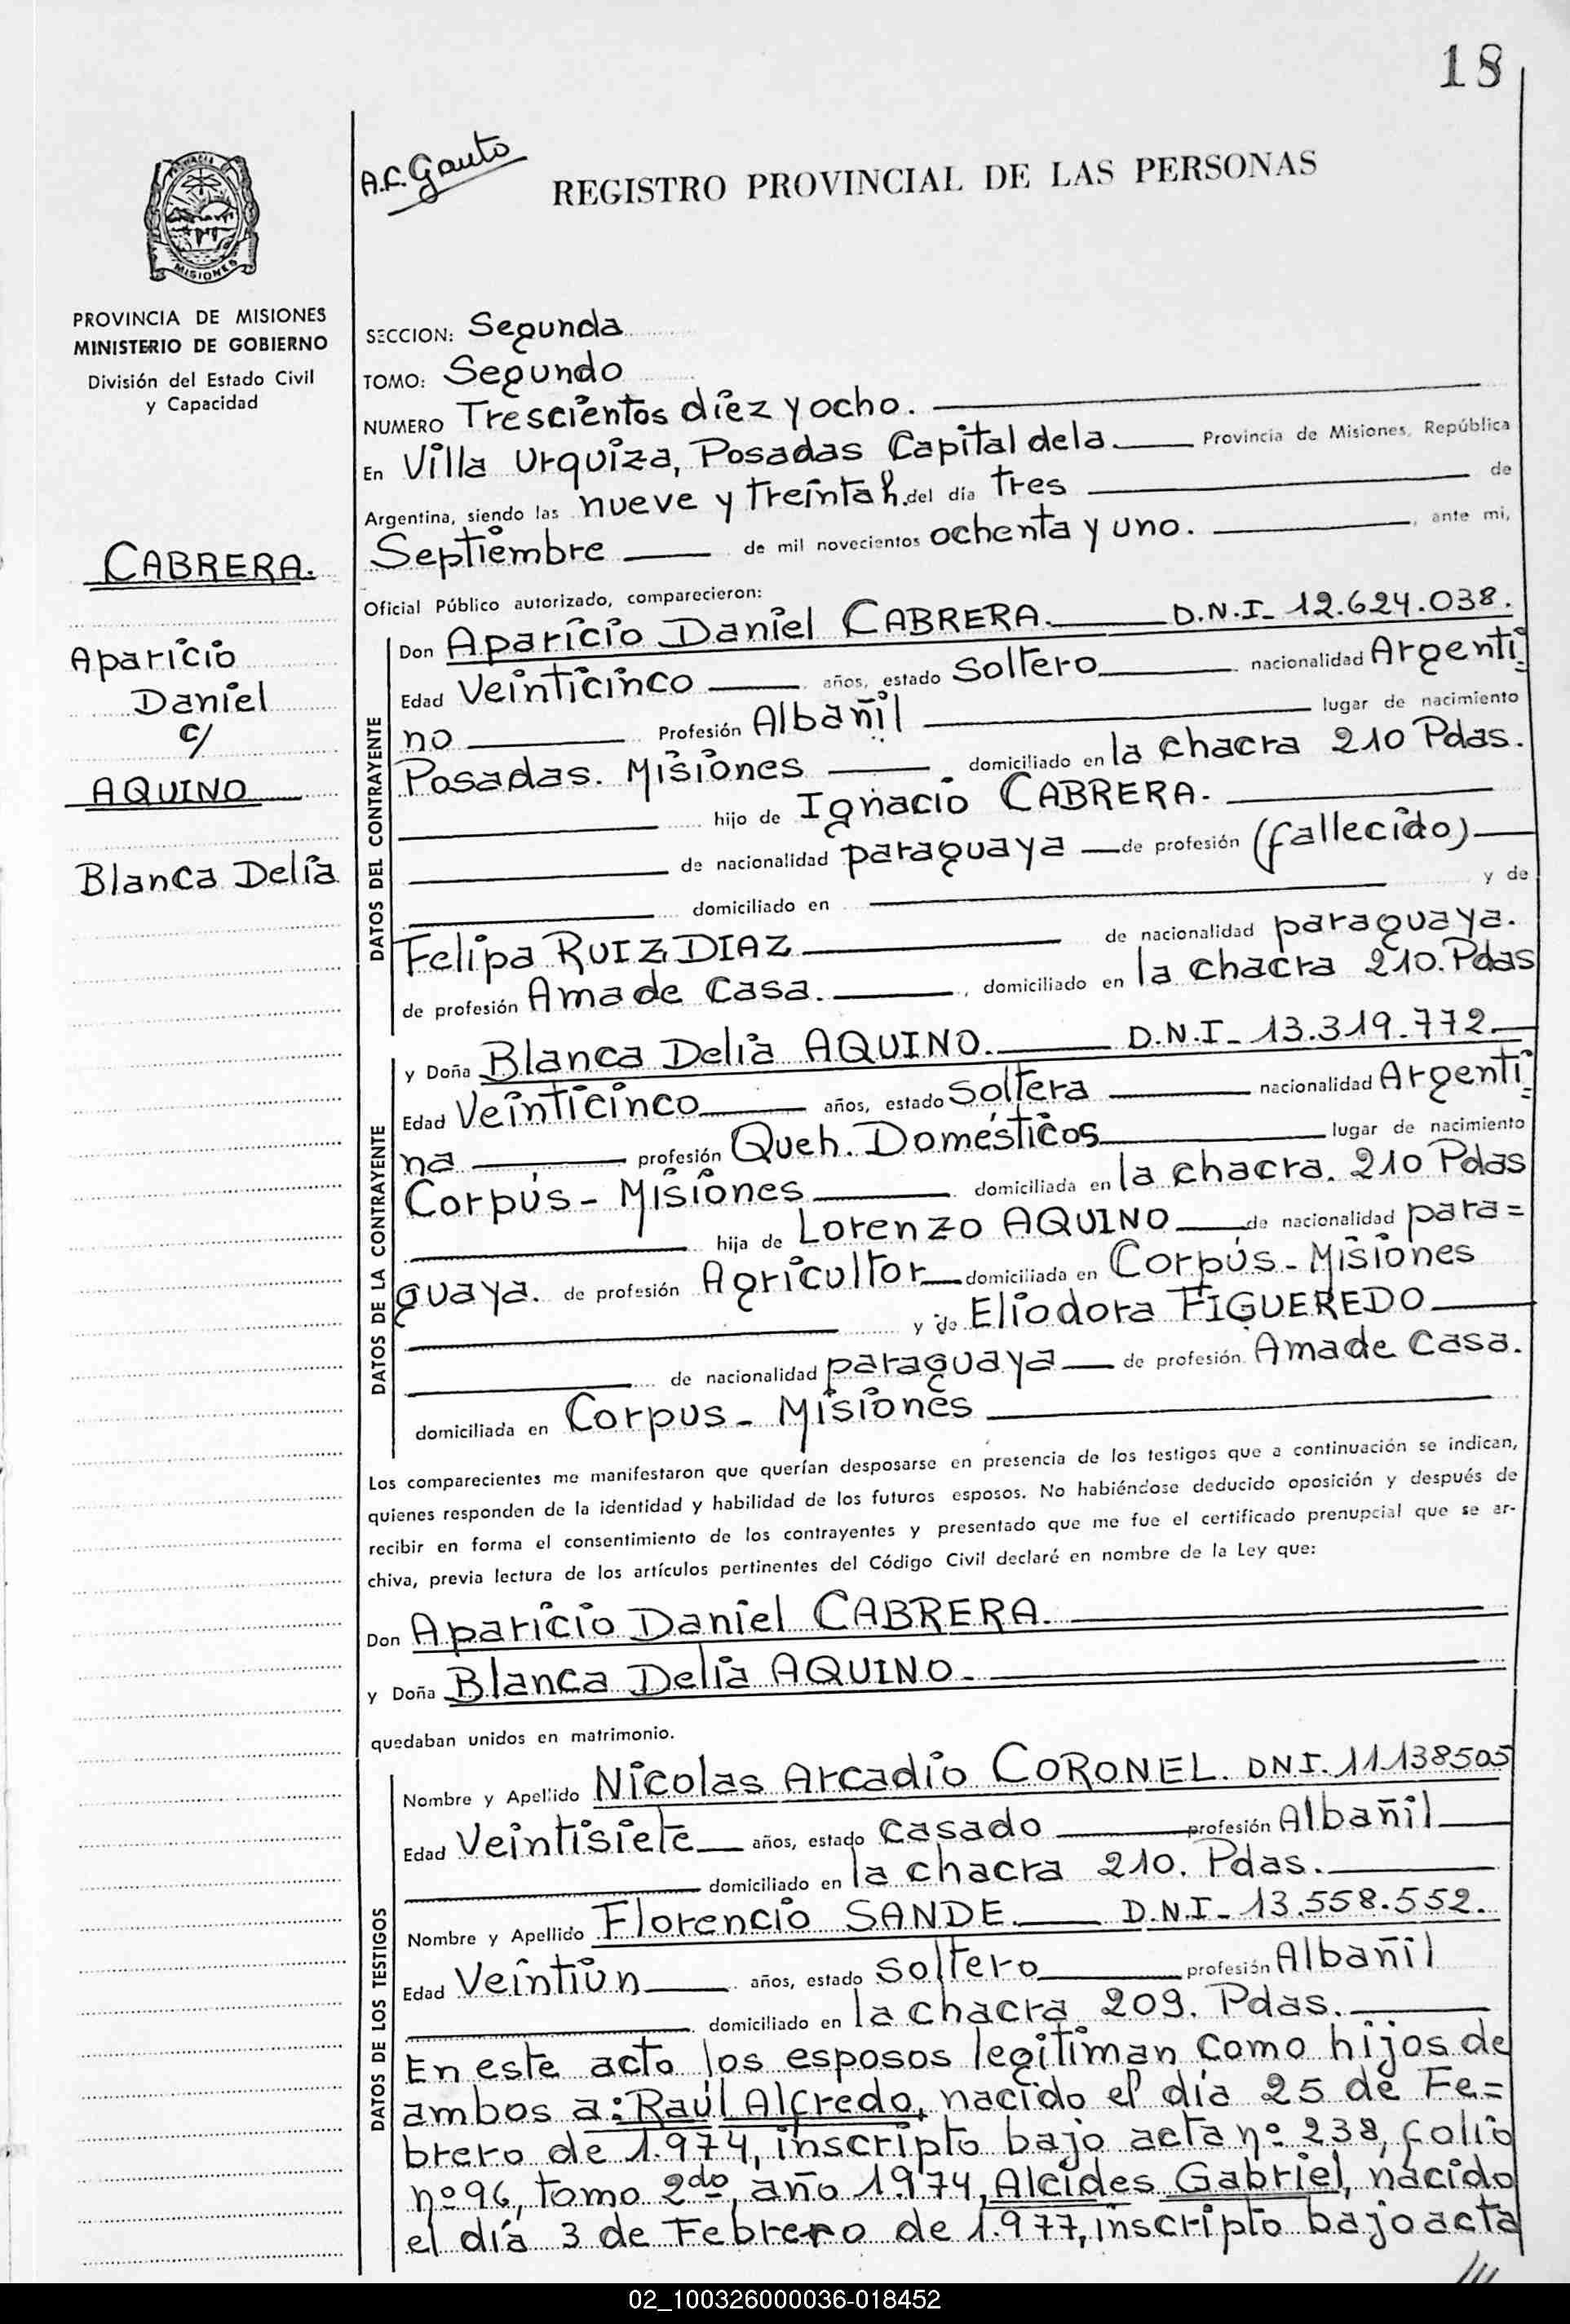 18
A.F. Gauto
REGISTRO PROVINCIAL DE LAS PERSONAS
MISIONES
PROVINCIA DE MISIONES
MINISTERIO DE GOBIERNO
División del Estado Civil
y Capacidad
CABRERA.
Aparicio
Daniel
c/
AQUINO
Blanca Delia
SECCION: Segunda
TOMO: Segundo
NUMERO Trescientos diez y ocho.
En Villa Urquiza, Posadas Capital de la Provincia de Misiones, República
Argentina, siendo las nueve y treinta h. del día tres de
Septiembre de mil novecientos ochenta y uno. , ante mi,
Oficial Público autorizado, comparecieron:
DATOS DEL CONTRAYENTE
Don Aparicio Daniel CABRERA. D.N.I- 12.624.038.
Edad Veinticinco años, estado Soltero nacionalidad Argenti
no Profesión Albañil lugar de nacimiento
Posadas. Misiones domiciliado en la chacra 210 Pdas.
hijo de Ignacio CABRERA.
de nacionalidad paraguaya de profesión (fallecido)
domiciliado en y de
Felipa RUIZ DIAZ de nacionalidad paraguaya.
de profesión Ama de Casa. , domiciliado en la chacra 210. Pdas
DATOS DE LA CONTRAYENTE
y Doña Blanca Delia AQUINO. D.N.I- 13.319.772.
Edad Veinticinco años, estado Soltera nacionalidad Argenti
na profesión Queh. Domésticos lugar de nacimiento
Corpus - Misiones domiciliada en la chacra. 210 Pdas
hija de Lorenzo AQUINO de nacionalidad para=
guaya. de profesión Agricultor domiciliada en Corpus - Misiones
y de Eliodora FIGUEREDO
de nacionalidad paraguaya de profesión Ama de Casa.
domiciliada en Corpus - Misiones
Los comparecientes me manifestaron que querían desposarse en presencia de los testigos que a continuación se indican,
quienes responden de la identidad y habilidad de los futuros esposos. No habiéndose deducido oposición y después de
recibir en forma el consentimiento de los contrayentes y presentado que me fue el certificado prenupcial que se ar-
chiva, previa lectura de los artículos pertinentes del Código Civil declaré en nombre de la Ley que:
Don Aparicio Daniel CABRERA.
y Doña Blanca Delia AQUINO.
quedaban unidos en matrimonio.
DATOS DE LOS TESTIGOS
Nombre y Apellido Nicolas Arcadio CORONEL. DNI. 11138505
Edad Veintisiete años, estado casado profesión Albañil
domiciliado en la chacra 210. Pdas.
Nombre y Apellido Florencio SANDE. D.N.I- 13.558.552.
Edad Veintiun años, estado soltero profesión Albañil
domiciliado en la chacra 209. Pdas.
En este acto los esposos legitiman como hijos de
ambos a: Raúl Alfredo, nacido el día 25 de Fe=
brero de 1.974, inscripto bajo acta nº 238, folio
nº 96, tomo 2do, año 1974, Alcides Gabriel, nacido
el día 3 de Febrero de 1.977, inscripto bajo acta
///
02_100326000036-018452